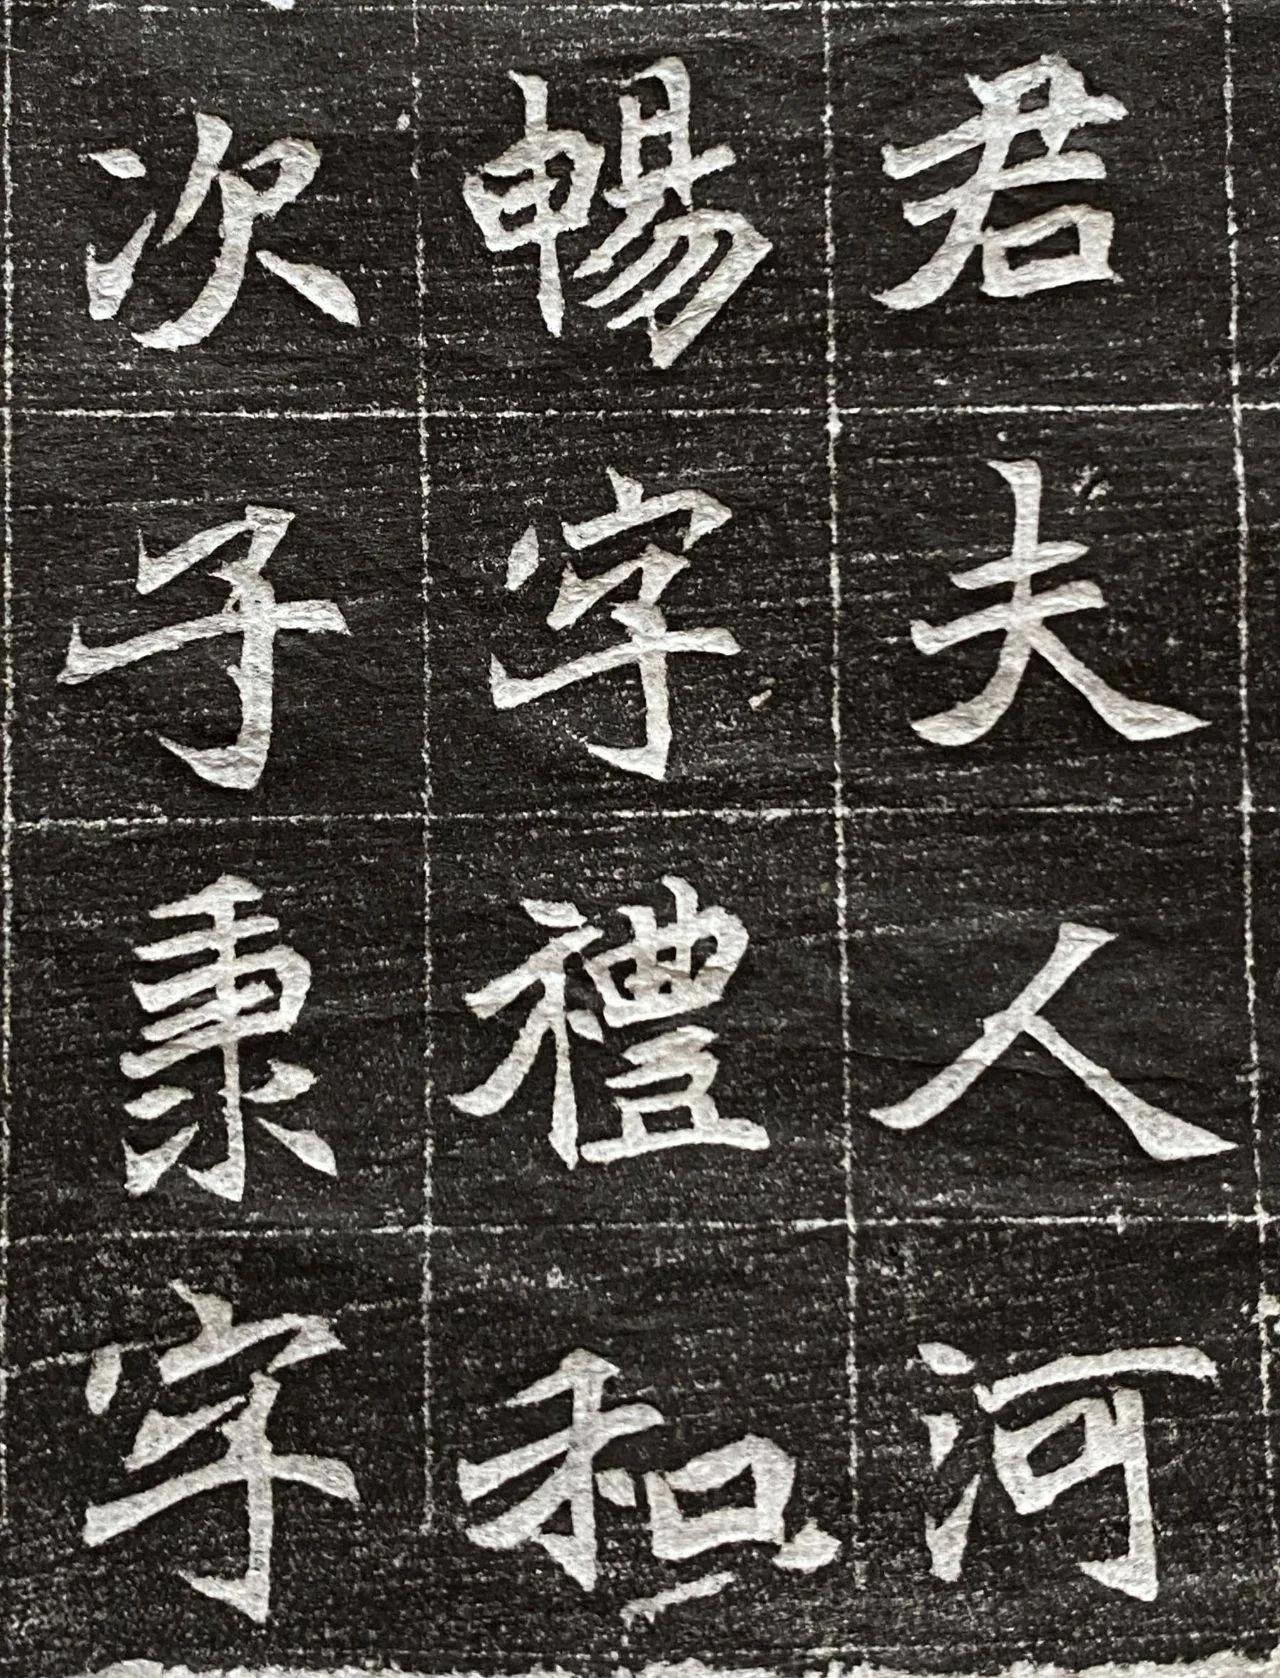 君夫人河
暢字禮和
次子秉字